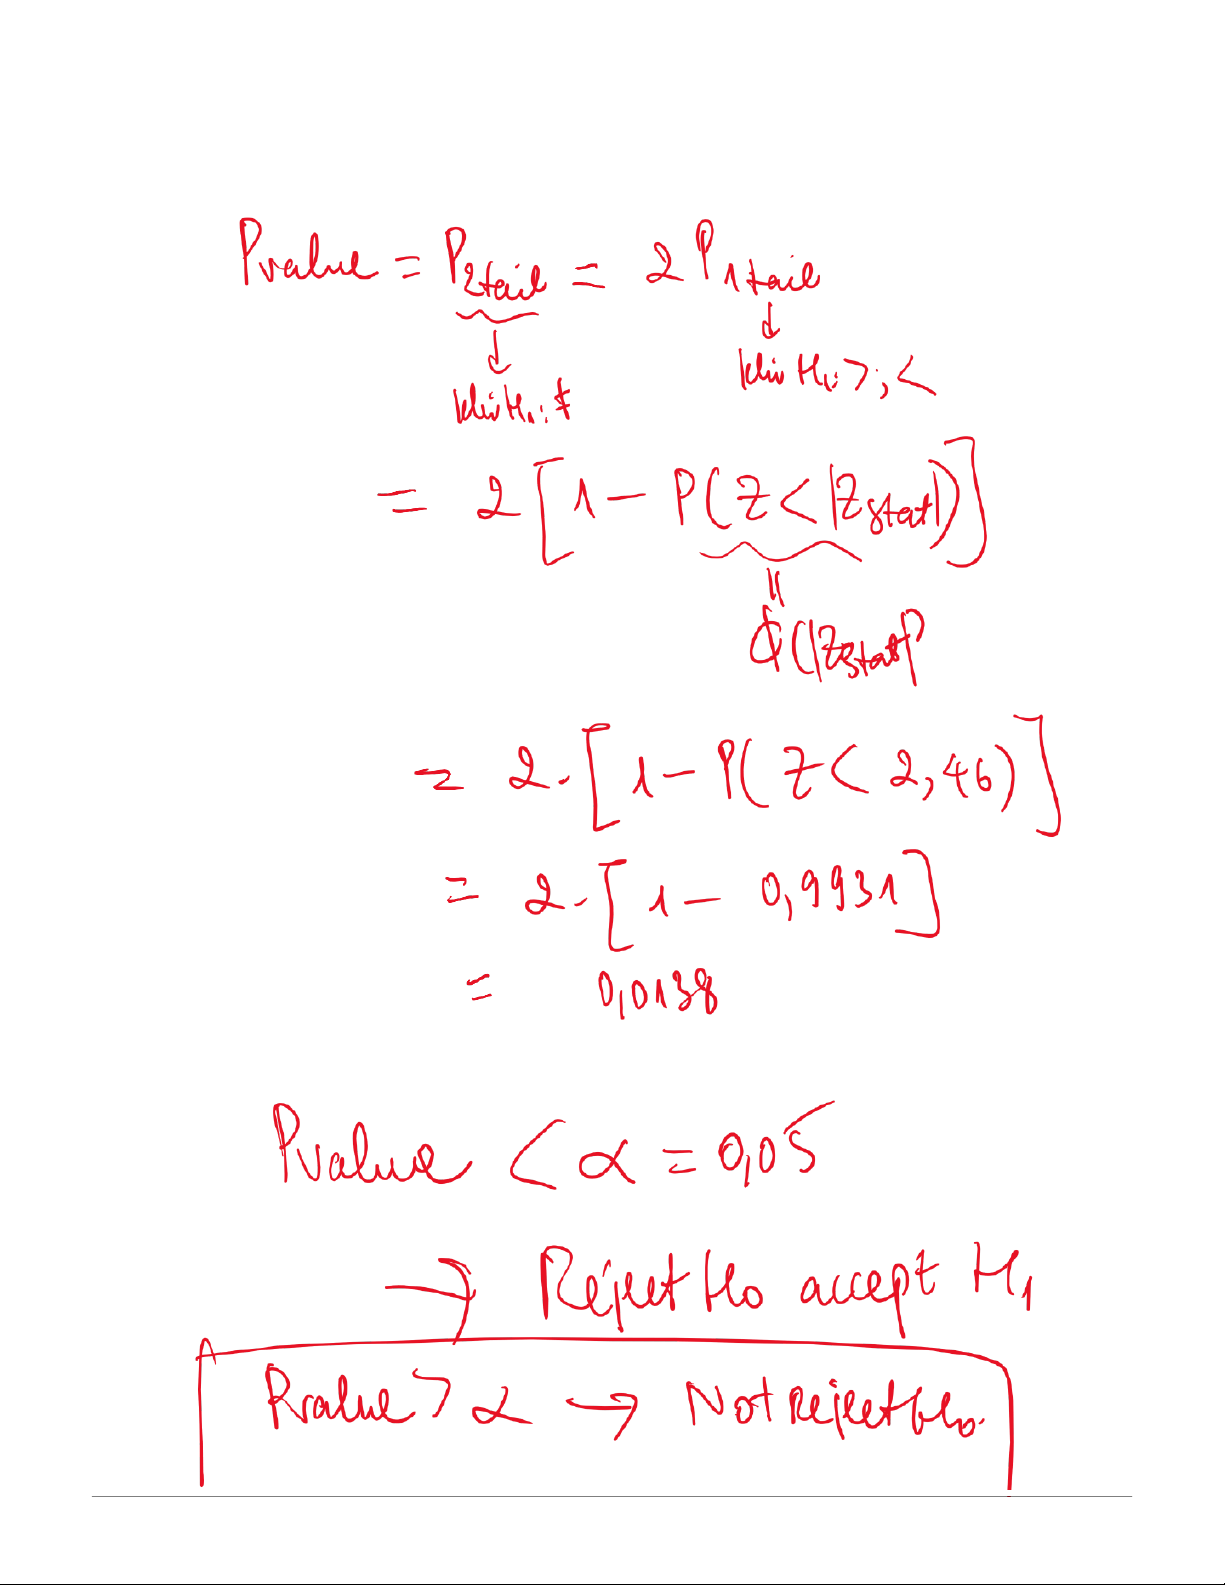 Pvalue = P2tail = 2 P1tail
↓ ↓
khi H1: ≠ khi H1: >, <
= 2 [1 - P(Z < |Zstat|)]
=
Φ(|Zstat|)
= 2. [1 - P(Z < 2,46)]
= 2. [1 - 0,9931]
= 0,0138
Pvalue < α = 0,05
→ Reject H0 accept H1
Pvalue > α → Not Reject H0.